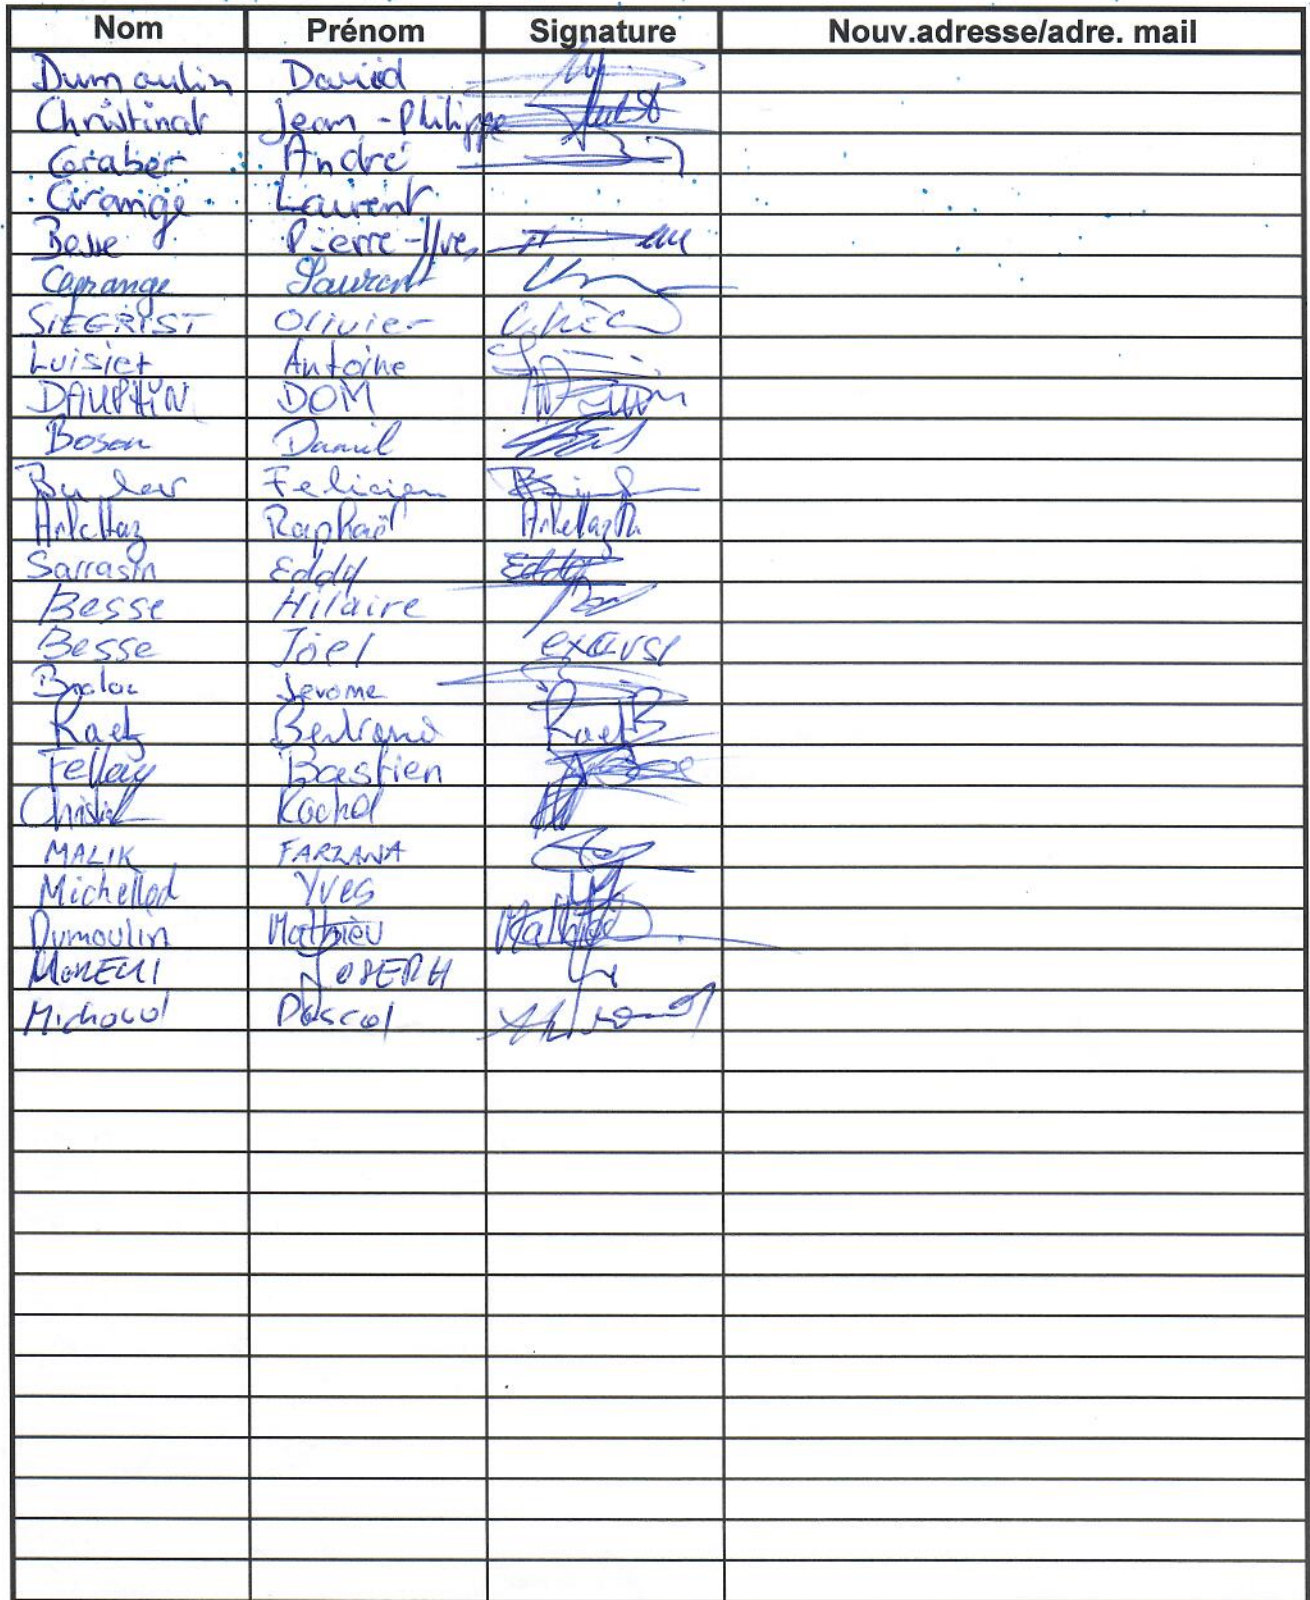 Nom Prénom Signature Nouv.adresse/adre. mail
Dumoulin David
Christinat Jean-Philippe
Graber André
Grange Laurent
Besse Pierre-Yves
Lagrange Laurent
SIEGRIST Olivier
Luisier Antoine
DAUPHIN DOM
Boson Daniel
Felicien
Arlettaz Raphaël Arlettaz
Sarrasin Eddy Eddy
Besse Hilaire
Besse Joël excusé
Jerome
Raetz Bertrand Raetz B
Fellay Bastien
Christinat Rachel
MALIK FARZANA
Michellod Yves
Dumoulin Mathieu Mathieu
JOSEPH
Michaud Pascal